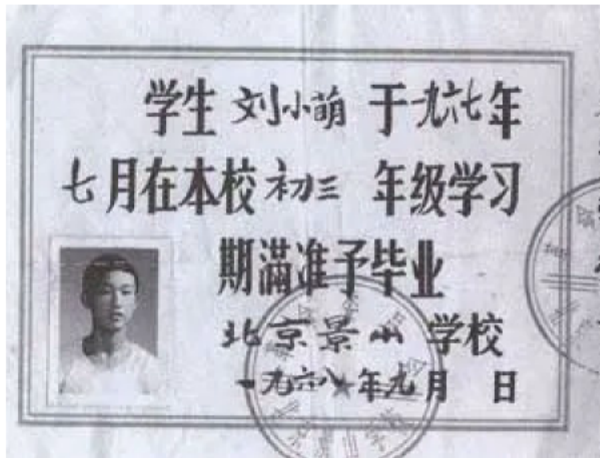 学生 刘小萌 于一九六七年
七月在本校初三 年级学习
期满准予毕业
北京景山 学校
一九六八年九月 日